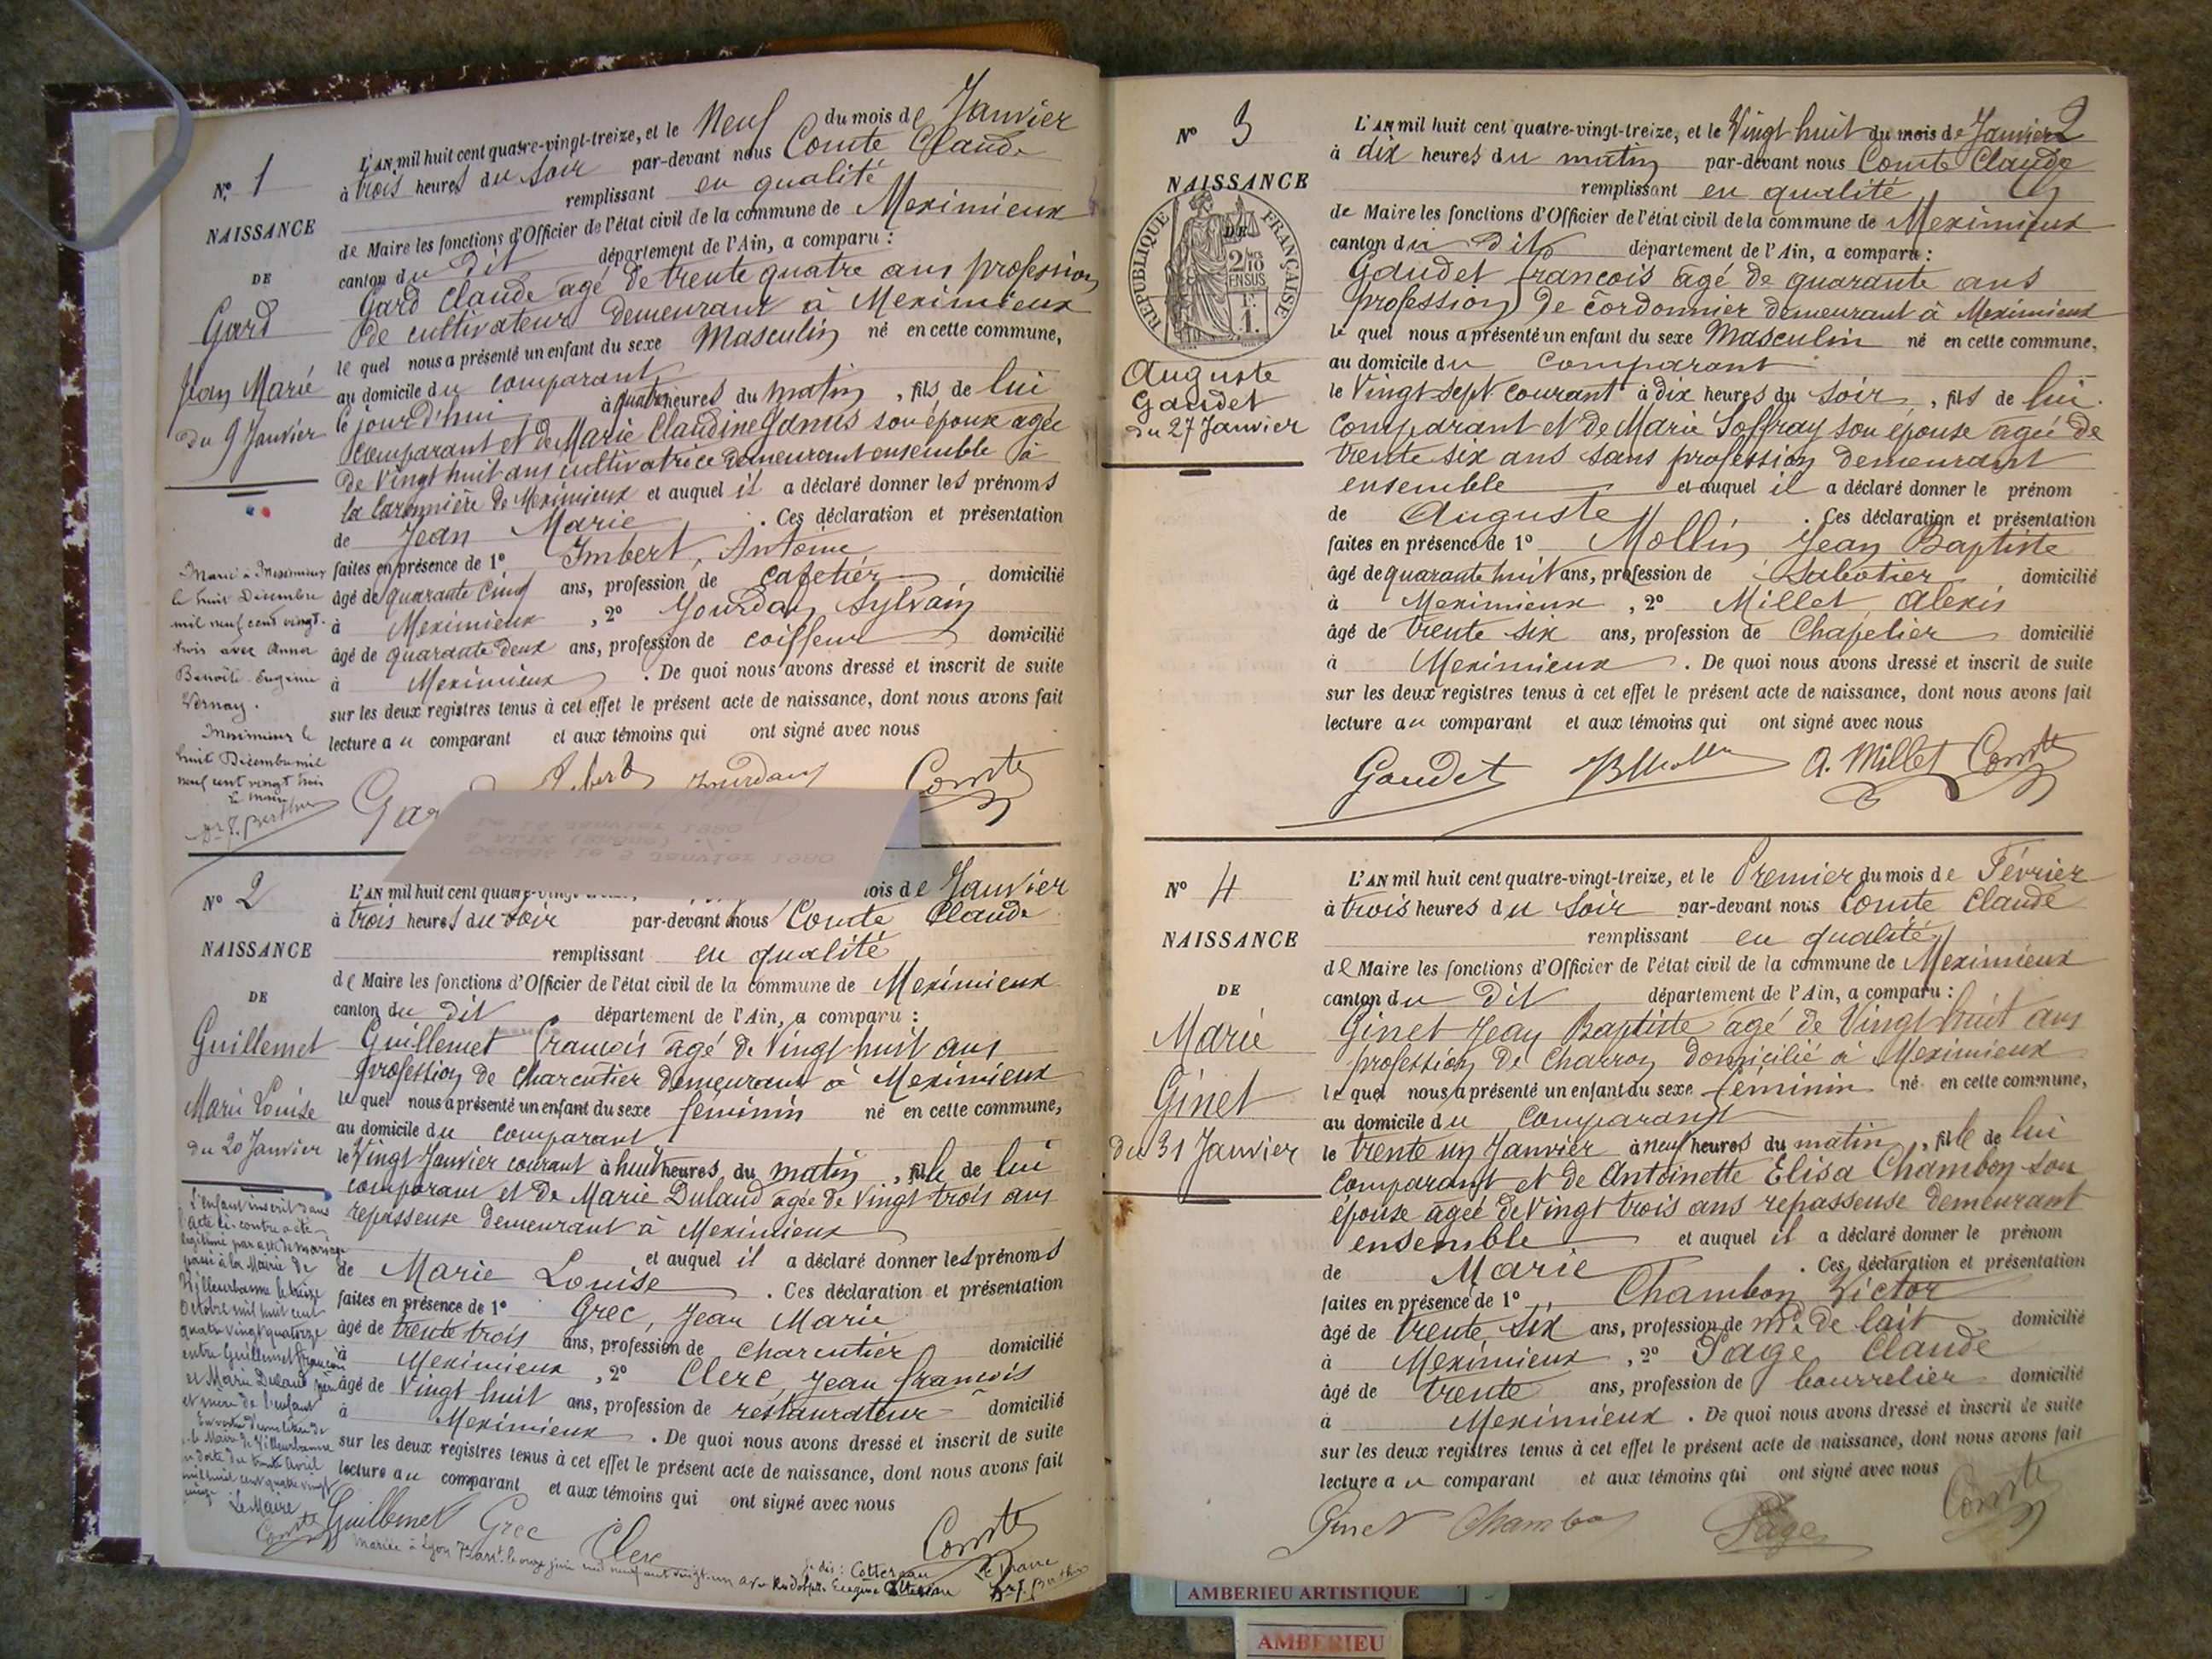 N° 1
NAISSANCE
DE
Gard
Jean Marie
du 9 Janvier
Marié à Meximieux
le huit Décembre
mil neuf cent vingt-
trois avec Anna
Benoîte Eugénie
Vernay.
Meximieux le
huit Décembre mil
neuf cent vingt trois
Le Maire
Dr. J. Berthier
L'AN mil huit cent quatre-vingt-treize, et le Neuf du mois de Janvier
à trois heures du soir par-devant nous Comte Claude
remplissant en qualité
de Maire les fonctions d'Officier de l'état civil de la commune de Meximieux
canton du dit département de l'Ain, a comparu :
Gard Claude agé de trente quatre ans profession
de cultivateur demeurant à Meximieux
le quel nous a présenté un enfant du sexe Masculin né en cette commune,
au domicile du comparant
le jourd'hui à quatre heures du matin, fils de lui
comparant et de Marie Claudine son épouse agée
de Vingt huit ans cultivatrice demeurant ensemble à
la de Meximieux et auquel il a déclaré donner les prénoms
de Jean Marie. Ces déclaration et présentation
faites en présence de 1° Imbert, Antoine
âgé de quarante cinq ans, profession de cafetier domicilié
à Meximieux, 2° Jourdan Sylvain
âgé de quarante deux ans, profession de coiffeur domicilié
à Meximieux. De quoi nous avons dressé et inscrit de suite
sur les deux registres tenus à cet effet le présent acte de naissance, dont nous avons fait
lecture au comparant et aux témoins qui ont signé avec nous
Jourdan Comte
N° 2
NAISSANCE
DE
Guillemet
Marie Louise
du 20 Janvier
L'enfant inscrit dans
l'acte ci-contre a été
légitimé par acte de mariage
passé à la Mairie de
Villeurbanne le treize
Octobre mil huit cent
quatre vingt quatorze
entre Guillemet François
et Marie Dulaud père
et mère de l'enfant
le Maire de Villeurbanne
en date du trente Avril
mil huit cent quatre vingt
Le Maire
Comte
L'AN mil huit cent mois de Janvier
à trois heures du soir par-devant nous Comte Claude
remplissant en qualité
de Maire les fonctions d'Officier de l'état civil de la commune de Meximieux
canton du dit département de l'Ain, a comparu :
Guillemet François agé de Vingt huit ans
profession de charcutier demeurant à Meximieux
le quel nous a présenté un enfant du sexe féminin né en cette commune,
au domicile du comparant
le Vingt Janvier courant à huit heures du matin, fille de lui
comparant et de Marie Dulaud agée de Vingt trois ans
repasseuse demeurant à Meximieux
et auquel il a déclaré donner les prénoms
de Marie Louise. Ces déclaration et présentation
faites en présence de 1° Grec, Jean Marie
âgé de trente trois ans, profession de charcutier domicilié
à Meximieux, 2° Clerc Jean François
âgé de Vingt huit ans, profession de restaurateur domicilié
à Meximieux. De quoi nous avons dressé et inscrit de suite
sur les deux registres tenus à cet effet le présent acte de naissance, dont nous avons fait
lecture au comparant et aux témoins qui ont signé avec nous
Guillemet Grec Clerc Comte
Mariée à Lyon le onze juin mil neuf cent vingt-un avec Rodolphe Eugène
Je dis : Cottereau Le Maire
Dr. J. Berthier
2
N° 3
NAISSANCE
DE
RÉPUBLIQUE FRANÇAISE
2/10 EN SUS
1F. 1.
Auguste
Gaudet
du 27 Janvier
L'AN mil huit cent quatre-vingt-treize, et le Vingt huit du mois de Janvier
à dix heures du matin par-devant nous Comte Claude
remplissant en qualité
de Maire les fonctions d'Officier de l'état civil de la commune de Meximieux
canton du dit département de l'Ain, a comparu :
Gaudet François agé de quarante ans
profession de cordonnier demeurant à Meximieux
le quel nous a présenté un enfant du sexe Masculin né en cette commune,
au domicile du comparant
le Vingt sept courant à dix heures du soir, fils de lui
comparant et de Marie Soffray son épouse agée de
trente six ans sans profession demeurant
ensemble et auquel il a déclaré donner le prénom
de Auguste. Ces déclaration et présentation
faites en présence de 1° Mollin Jean Baptiste
âgé de quarante huit ans, profession de sabotier domicilié
à Meximieux, 2° Millet Alexis
âgé de trente six ans, profession de Chapelier domicilié
à Meximieux. De quoi nous avons dressé et inscrit de suite
sur les deux registres tenus à cet effet le présent acte de naissance, dont nous avons fait
lecture au comparant et aux témoins qui ont signé avec nous
Gaudet A. Millet Comte
N° 4
NAISSANCE
DE
Marie
Ginet
du 31 Janvier
L'AN mil huit cent quatre-vingt-treize, et le Premier du mois de Février
à trois heures du soir par-devant nous Comte Claude
remplissant en qualité
de Maire les fonctions d'Officier de l'état civil de la commune de Meximieux
canton du dit département de l'Ain, a comparu :
Ginet Jean Baptiste agé de Vingt huit ans
profession de Charron domicilié à Meximieux
le quel nous a présenté un enfant du sexe féminin né en cette commune,
au domicile du comparant
le trente un Janvier à neuf heures du matin, fille de lui
comparant et de Antoinette Elisa Chambon son
épouse agée de Vingt trois ans repasseuse demeurant
ensemble et auquel il a déclaré donner le prénom
de Marie. Ces déclaration et présentation
faites en présence de 1° Chambon Victor
âgé de trente six ans, profession de md. de lait domicilié
à Meximieux, 2° Page Claude
âgé de trente ans, profession de bourrelier domicilié
à Meximieux. De quoi nous avons dressé et inscrit de suite
sur les deux registres tenus à cet effet le présent acte de naissance, dont nous avons fait
lecture au comparant et aux témoins qui ont signé avec nous
Ginet Chambon Page Comte
AMBERIEU ARTISTIQUE
AMBERIEU